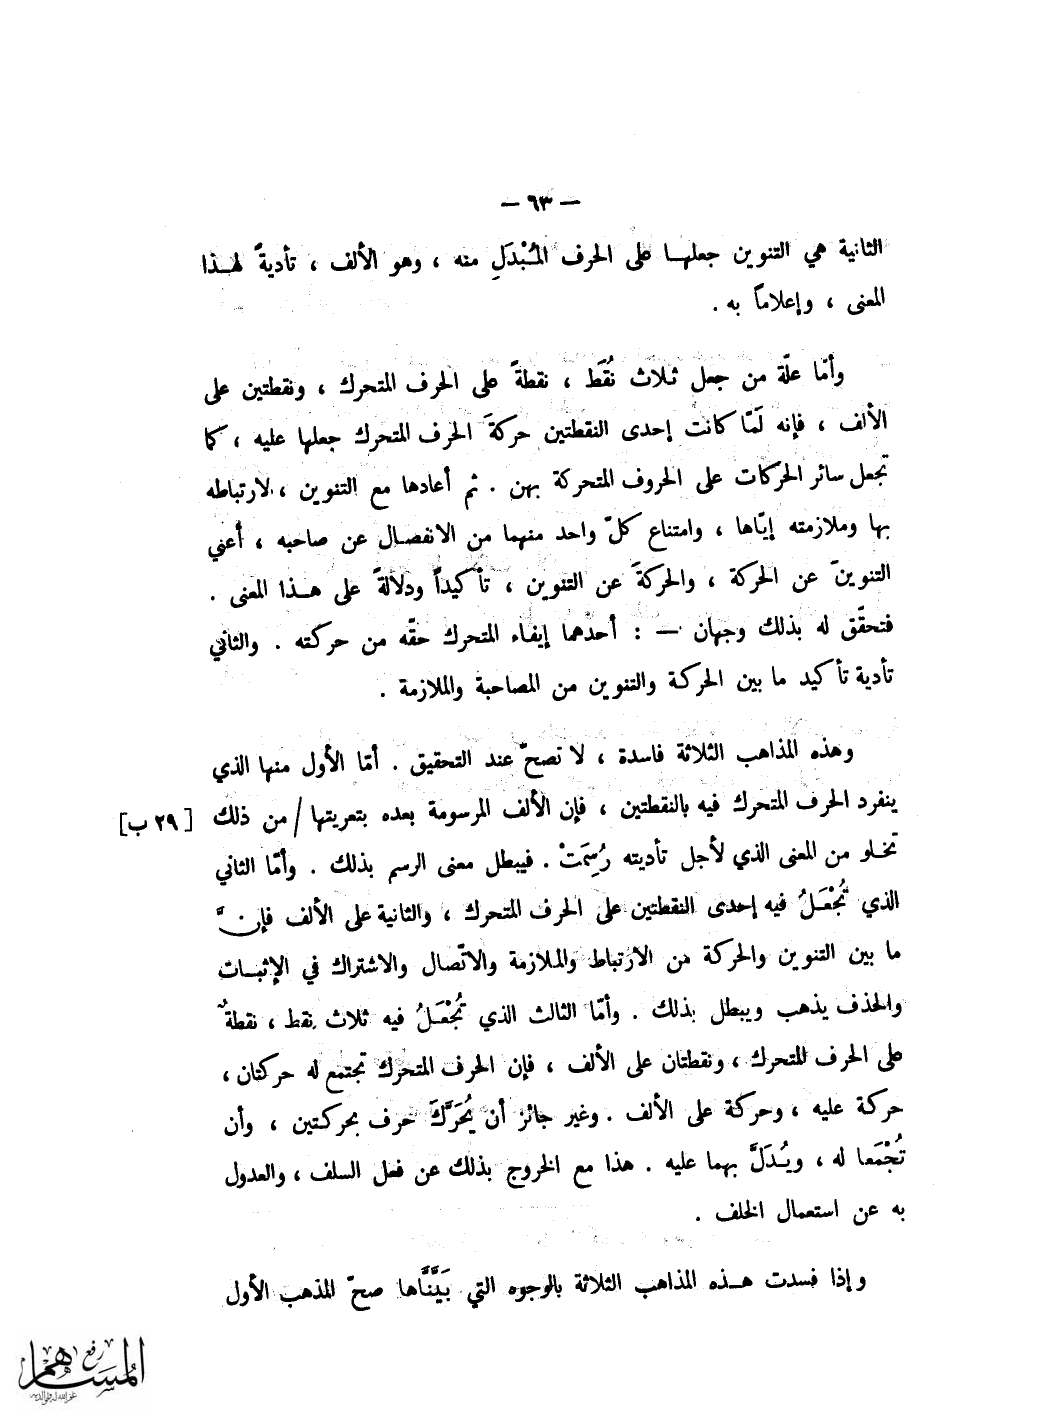 — ٦٣ —
الثانية هي التنوين جعلهـا على الحرف المُبْدَلِ منه ، وهو الألف ، تأديةً لهـذا
المعنى ، وإعلاماً به .
وأمّا علّة من جعل ثـلاث نُقَط ، نقطةً على الحرف المتحرك ، ونقطتين على
الألف ، فإنه لَمّا كانت إحدى النقطتين حركةَ الحرف المتحرك جعلها عليه ، كما
تجعل سائر الحركات على الحروف المتحركة بهن . ثم أعادها مع التنوين ، لارتباطه
بها وملازمته إيّاها ، وامتناع كلّ واحد منهما من الانفصـال عن صاحبه ، أعني
التنوينَ عن الحركة ، والحركةَ عن التنوين ، تأكيداً ودلالةً على هـذا المعنى .
فتحقّق له بذلك وجهان — : أحدهما إيفاء المتحرك حقّه من حركته . والثاني
تأدية تأكيد ما بين الحركة والتنوين من المصاحبة والملازمة .
وهذه المذاهب الثلاثة فاسدة ، لا تصحّ عند التحقيق . أمّا الأول منها الذي
ينفرد الحرف المتحرك فيه بالنقطتين ، فإن الألف المرسومة بعده بتعريتها / من ذلك [ ٢٩ ب ]
تخـلو من المعنى الذي لأجل تأديته رُسِمَتْ . فيبطل معنى الرسم بذلك . وأمّا الثاني
الذي تُجْعَـلُ فيه إحدى النقطتين على الحرف المتحرك ، والثانية على الألف فإنّ
ما بين التنوين والحركة من الارتباط والملازمة والاتّصال والاشتراك في الإثبـات
والحذف يذهب ويبطل بذلك . وأمّا الثالث الذي تُجْعَـلُ فيه ثلاث نقط ، نقطةٌ
على الحرف المتحرك ، ونقطتان على الألف ، فإن الحرف المتحرك تجتمع له حركتان ،
حركة عليه ، وحركة على الألف . وغير جائز أن يُحَرَّكَ حرف بحركتين ، وأن
تُجْمَعا له ، ويُـدَلَّ بهما عليه . هذا مع الخروج بذلك عن فعل السلف ، والعدول
به عن استعمال الخلف .
وإذا فسدت هـذه المذاهب الثلاثة بالوجوه التي بَيَّنَّاها صحّ المذهب الأول
رفع
المساهم